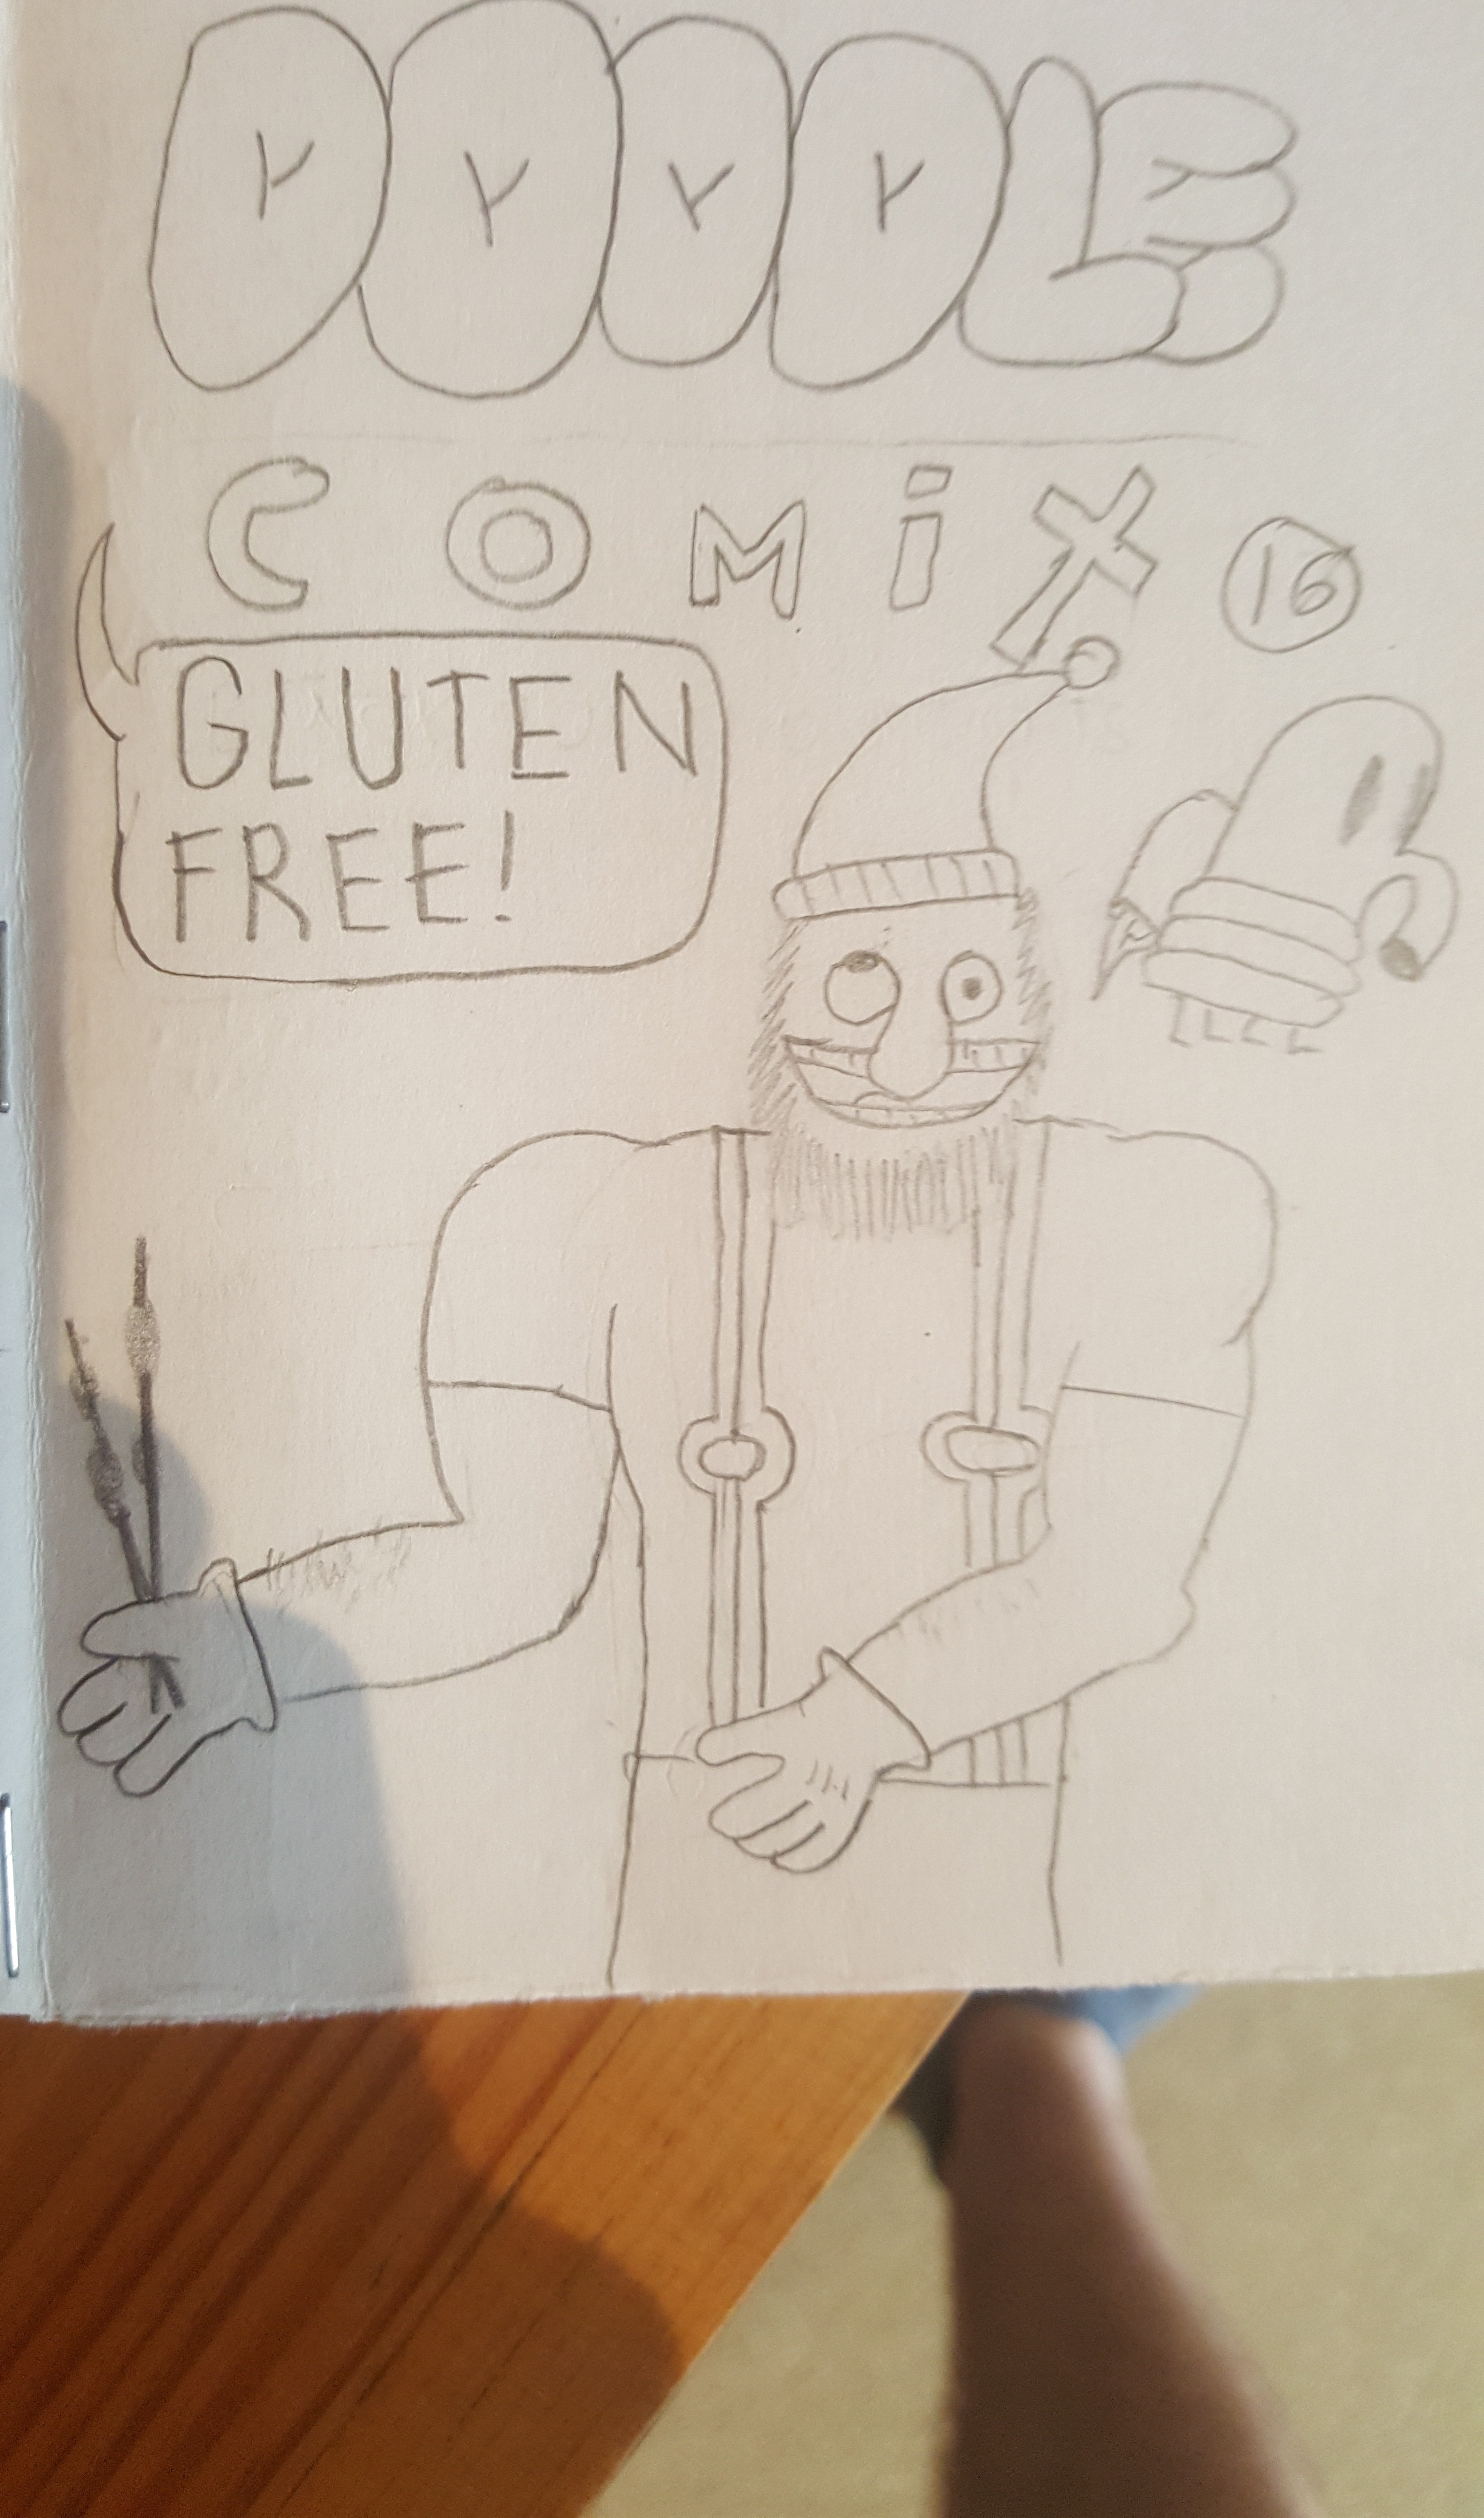 DOODLE
COMiX 16
GLUTEN
FREE!